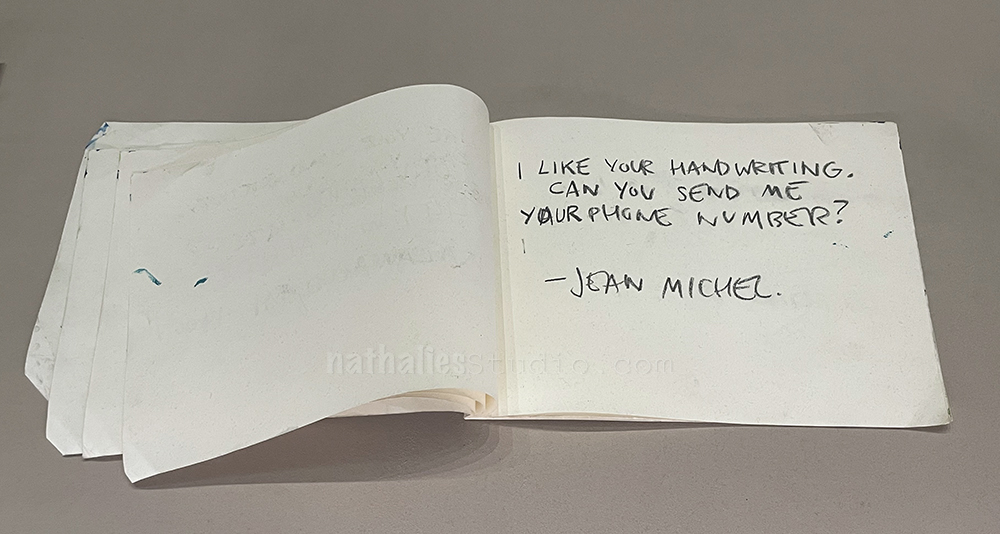 I LIKE YOUR HANDWRITING.
CAN YOU SEND ME
YOUR PHONE NUMBER?
—JEAN MICHEL.
nathaliesstudio.com